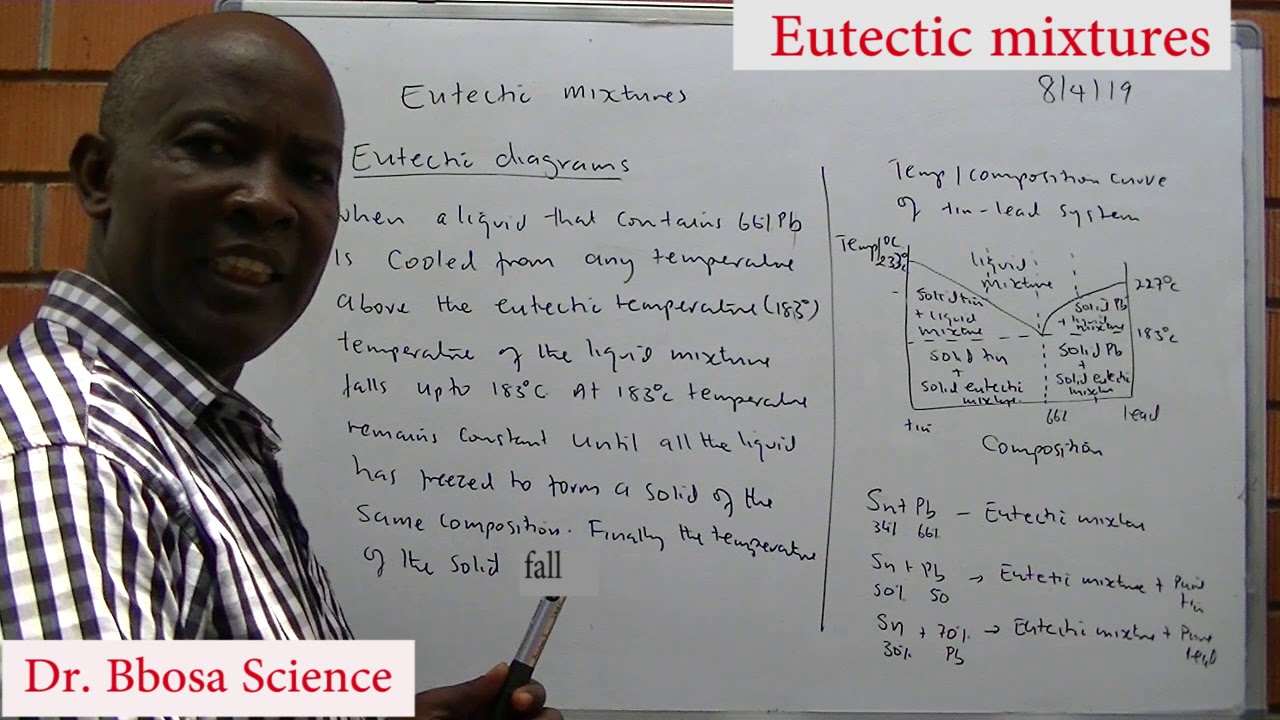 Eutectic mixtures
Eutectic mixtures
8/4/19
Eutectic diagrams
when a liquid that contains 66% Pb
is cooled from any temperature
above the eutectic temperature (183°)
temperature of the liquid mixture
falls upto 183°C. At 183°C temperature
remains constant until all the liquid
has freezed to form a solid of the
same composition. Finally the temperature
of the solid fall
Temp/composition curve
of tin-lead system
Temp/°C
233°C
liquid
mixture
227°C
183°C
solid tin
+ liquid
mixture
solid Pb
+ liquid
mixture
solid tin
+
solid eutectic
mixture
solid Pb
+
solid eutectic
mixture
tin
66%
lead
Composition
Sn + Pb - Eutectic mixture
34% 66%
Sn + Pb → Eutectic mixture + Pure
50% 50 tin
Sn + 70% → Eutectic mixture + Pure
30% Pb lead
Dr. Bbosa Science